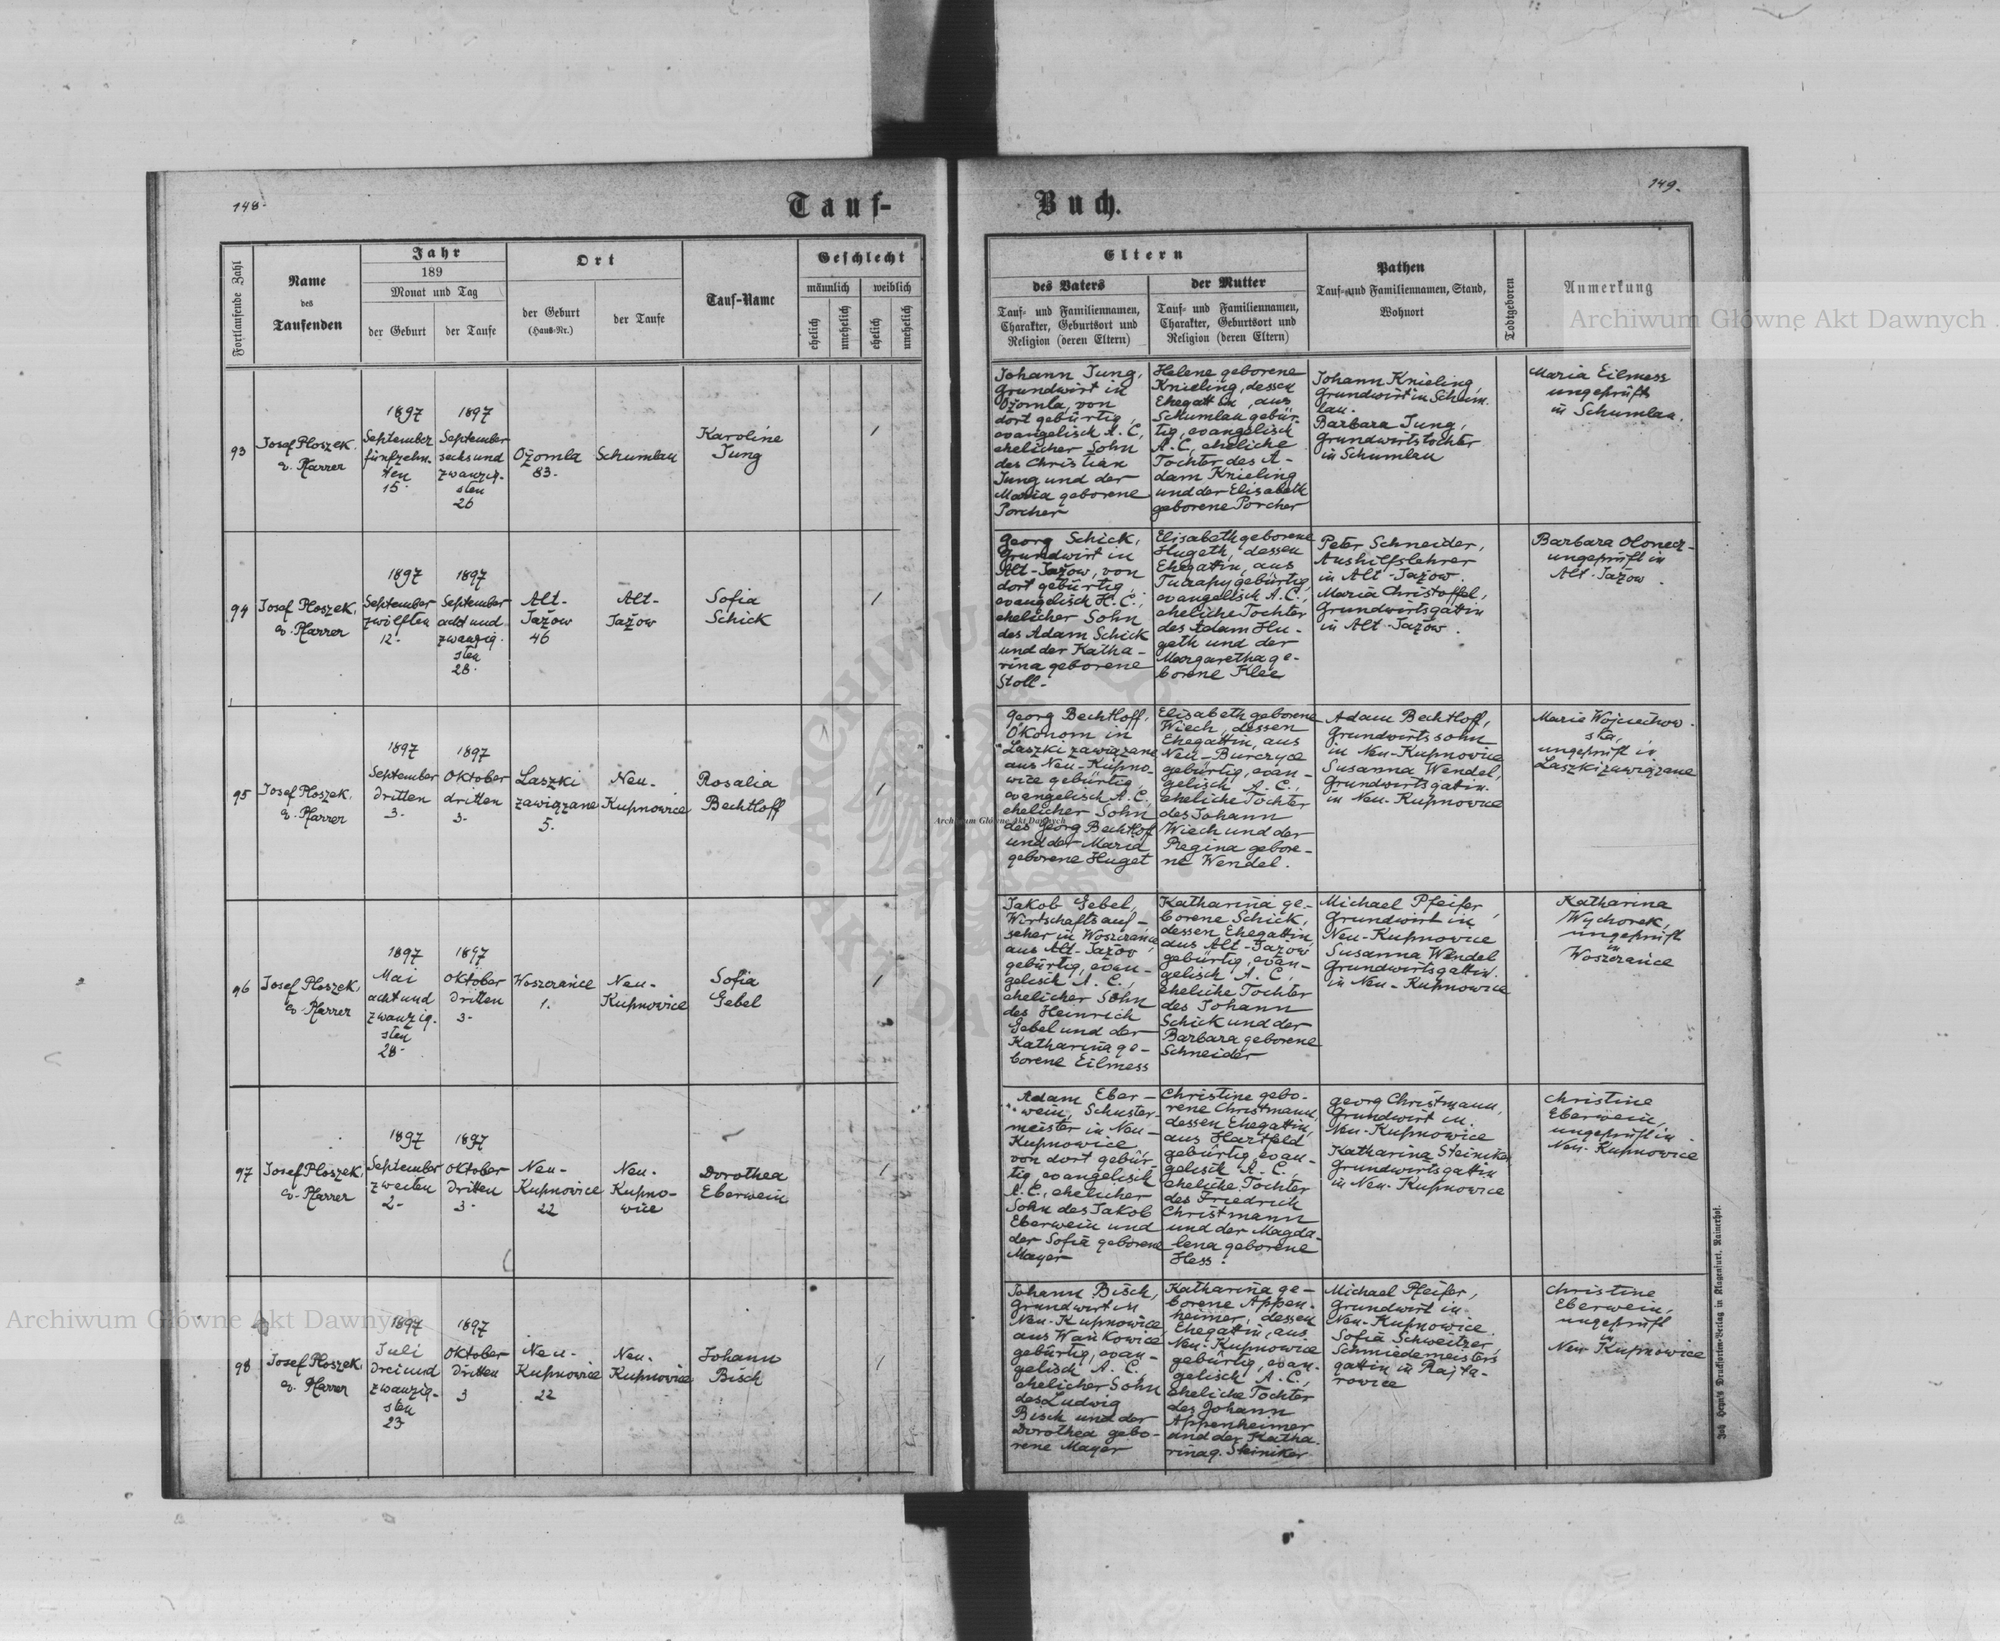 148.
Tauf-
Buch.
149.
Fortlaufende Zahl
Name
des
Taufenden
Jahr
189
Monat und Tag
der Geburt
der Taufe
Ort
der Geburt
(Haus-Nr.)
der Taufe
Tauf-Name
Geschlecht
männlich
weiblich
ehelich
unehelich
ehelich
unehelich
Eltern
des Vaters
Tauf- und Familiennamen,
Charakter, Geburtsort und
Religion (deren Eltern)
der Mutter
Tauf- und Familiennamen,
Charakter, Geburtsort und
Religion (deren Eltern)
Pathen
Tauf- und Familiennamen, Stand,
Wohnort
Todtgeboren
Anmerkung
93
Josef Ploszek.
ev. Pfarrer
1897
September
fünfzehn-
ten
15.
1897
September
sechsund
zwanzig-
sten
26
Ożomla
83.
Schumlau
Karoline
Jung
1
Johann Jung,
Grundwirt in
Ożomla, von
dort gebürtig,
evangelisch A. C,
ehelicher Sohn
des Christian
Jung und der
Maria geborene
Porcher
Helene geborene
Knieling, dessen
Ehegattin, aus
Schumlau gebür-
tig, evangelisch
A. C, eheliche
Tochter des A-
dam Knieling
und der Elisabeth
geborene Porcher
Johann Knieling,
Grundwirt in Schum-
lau.
Barbara Jung,
Grundwirtstochter
in Schumlau
Maria Eilmess
ungeprüft
in Schumlau.
94
Josef Ploszek.
ev. Pfarrer
1897
September
zwölften
12.
1897
September
acht und
zwanzig-
sten
28.
Alt-
Jażow
46
Alt-
Jażow
Sofia
Schick
1
Georg Schick,
Grundwirt in
Alt-Jażow, von
dort gebürtig,
evangelisch H. C.,
ehelicher Sohn
des Adam Schick
und der Katha-
rina geborene
Stoll-
Elisabeth geborene
Hugeth, dessen
Ehegattin, aus
Tuczapy gebürtig,
evangelisch A. C.,
eheliche Tochter
des Adam Hu-
geth und der
Margaretha ge-
borene Klee
Peter Schneider,
Aushilfslehrer
in Alt-Jażow.
Maria Christoffel,
Grundwirtsgattin
in Alt-Jażow.
Barbara Olonecz-
ungeprüft in
Alt-Jażow.
95
Josef Ploszek.
ev. Pfarrer
1897
September
dritten
3.
1897
Oktober
dritten
3.
Laszki
zawiązane
5.
Neu-
Kupnowice
Rosalia
Bechtloff
1
Georg Bechtloff,
Ökonom in
Laszki zawiązane,
aus Neu-Kupno-
wice gebürtig,
evangelisch A. C,
ehelicher Sohn
des Georg Bechtlof
und der Maria
geborene Huget
Elisabeth geborene
Wiech, dessen
Ehegattin, aus
Neu-Burczyce
gebürtig, evan-
gelisch A. C.,
eheliche Tochter
des Johann
Wiech und der
Regina gebore-
ne Wendel.
Adam Bechtloff,
Grundwirtssohn
in Neu-Kupnovice
Susanna Wendel,
Grundwirtsgattin.
in Neu-Kupnovice
Maria Wojciechow-
ska,
ungeprüft in
Laszki zawiązane
96
Josef Ploszek.
ev. Pfarrer
1897
Mai
acht und
zwanzig-
sten
28.
1897
Oktober
dritten
3.
Woszczańce
1.
Neu-
Kupnovice
Sofia
Gebel
1
Jakob Gebel,
Wirtschaftsauf-
seher in Woszczańce,
aus Alt-Jażow
gebürtig, evan-
gelisch A. C.,
ehelicher Sohn
des Heinrich
Gebel und der
Katharina ge-
borene Eilmess
Katharina ge-
borene Schick,
dessen Ehegattin,
aus Alt-Jażow
gebürtig, evan-
gelisch A. C,
eheliche Tochter
des Johann
Schick und der
Barbara geborene
Schneider
Michael Pfeifer,
Grundwirt in
Neu-Kupnowice
Susanna Wendel
Grundwirtsgattin.
in Neu-Kupnowice
Katharina
Wychorek,
ungeprüft
in
Woszczańce
97
Josef Ploszek.
ev. Pfarrer
1897
September
zweiten
2.
1897
Oktober
dritten
3.
Neu-
Kupnovice
22
Neu-
Kupno-
wice
Dorothea
Eberwein
1
Adam Eber-
wein, Schuster-
meister in Neu-
Kupnowice
von dort gebür-
tig, evangelisch
A. C, ehelicher
Sohn des Jakob
Eberwein und
der Sofia geborene
Mayer
Christine gebo-
rene Christmann,
dessen Ehegattin,
aus Hartfeld
gebürtig, evan-
gelisch A. C,
eheliche Tochter
des Friedrich
Christmann
und der Magda-
lena geborene
Hess.
Georg Christmann,
Grundwirt in
Neu-Kupnowice
Katharina Steiniker
Grundwirtsgattin
in Neu-Kupnowice
Christine
Eberwein,
ungeprüft in
Neu-Kupnowice
98
Josef Ploszek.
ev. Pfarrer
1897
Juli
Drei und
zwanzig-
sten
23.
1897
Oktober
Dritten
3
Neu-
Kupnovice
22
Neu-
Kupnovice
Johann
Bisch
1
Johann Bisch,
Grundwirt in
Neu-Kupnowice,
aus Wańkowice
gebürtig, evan-
gelisch A. C,
ehelicher Sohn
des Ludwig
Bisch und der
Dorothea gebo-
rene Mayer
Katharina ge-
borene Appen-
heimer, dessen
Ehegattin, aus
Neu-Kupnowice
gebürtig, evan-
gelisch A. C.,
eheliche Tochter
des Johann
Appenheimer
und der Katha-
rina g. Steiniker
Michael Pfeifer,
Grundwirt in
Neu-Kupnowice.
Sofia Schweitzer,
Schmiedemeisters
gattin in Rajta-
rowice
Christine
Eberwein,
ungeprüft
in
Neu-Kupnowice
Joh. Heyn's Drucksorten-Verlag in Klagenfurt, Rainerhof.
Archiwum Główne Akt Dawnych
Archiwum Główne Akt Dawnych
Archiwum Główne Akt Dawnych